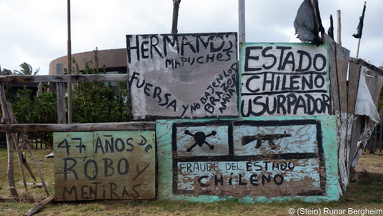 HERMANOS
MAPUCHES
FUERZA
Y NO BAJEN LOS
BRAZOS
ESTADO
CHILENO
USURPADOR
47 AÑOS DE
ROBO Y
MENTIRAS
FRAUDE DEL ESTADO
CHILENO
© (Stein) Runar Bergheim